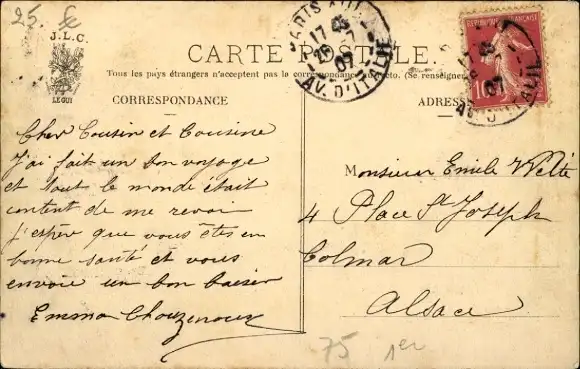 25. £
J.L.C.
LE GUI
CARTE POSTALE.
Tous les pays étrangers n'acceptent pas la correspondance au recto. (Se renseigner
CORRESPONDANCE
ADRESSE
PARIS XIII
17 45
26 -7
07
AV. D'ITALIE
RÉPUBLIQUE FRANÇAISE
10
17
07
AV. D'ITALIE
Cher Cousin et Cousine
J'ai fait un bon voyage
et tout le monde était
content de me revoir
j'espère que vous êtes en
bonne santé et vous
envoie un bon baiser
Emma
Monsieur Emile Welté
4 Place St Joseph
Colmar
Alsace
75 1er